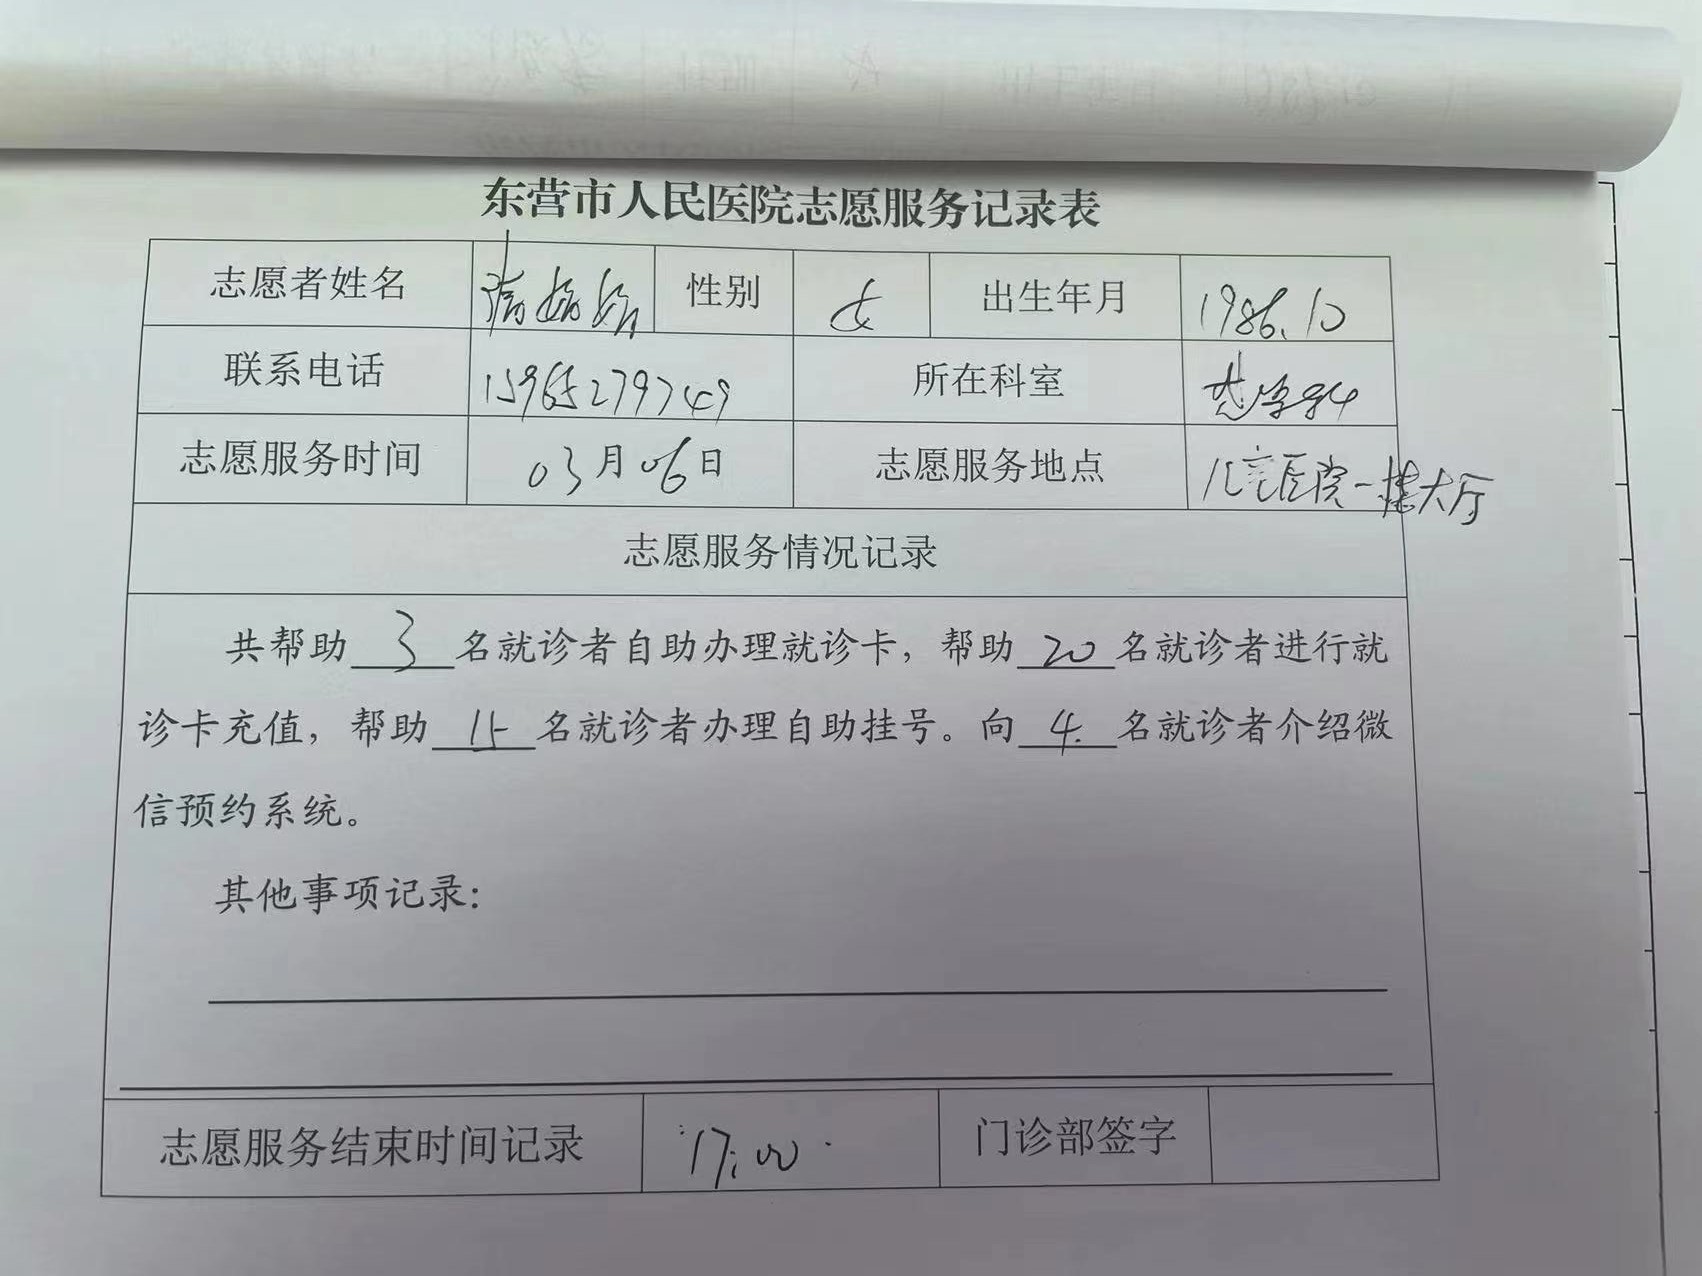 东营市人民医院志愿服务记录表
志愿者姓名 性别 女 出生年月 1986.10
联系电话 15965279749 所在科室
志愿服务时间 03月06日 志愿服务地点 儿童医院一楼大厅
志愿服务情况记录
共帮助 3 名就诊者自助办理就诊卡，帮助 20 名就诊者进行就
诊卡充值，帮助 15 名就诊者办理自助挂号。向 4 名就诊者介绍微
信预约系统。
其他事项记录：
志愿服务结束时间记录 17:00 门诊部签字